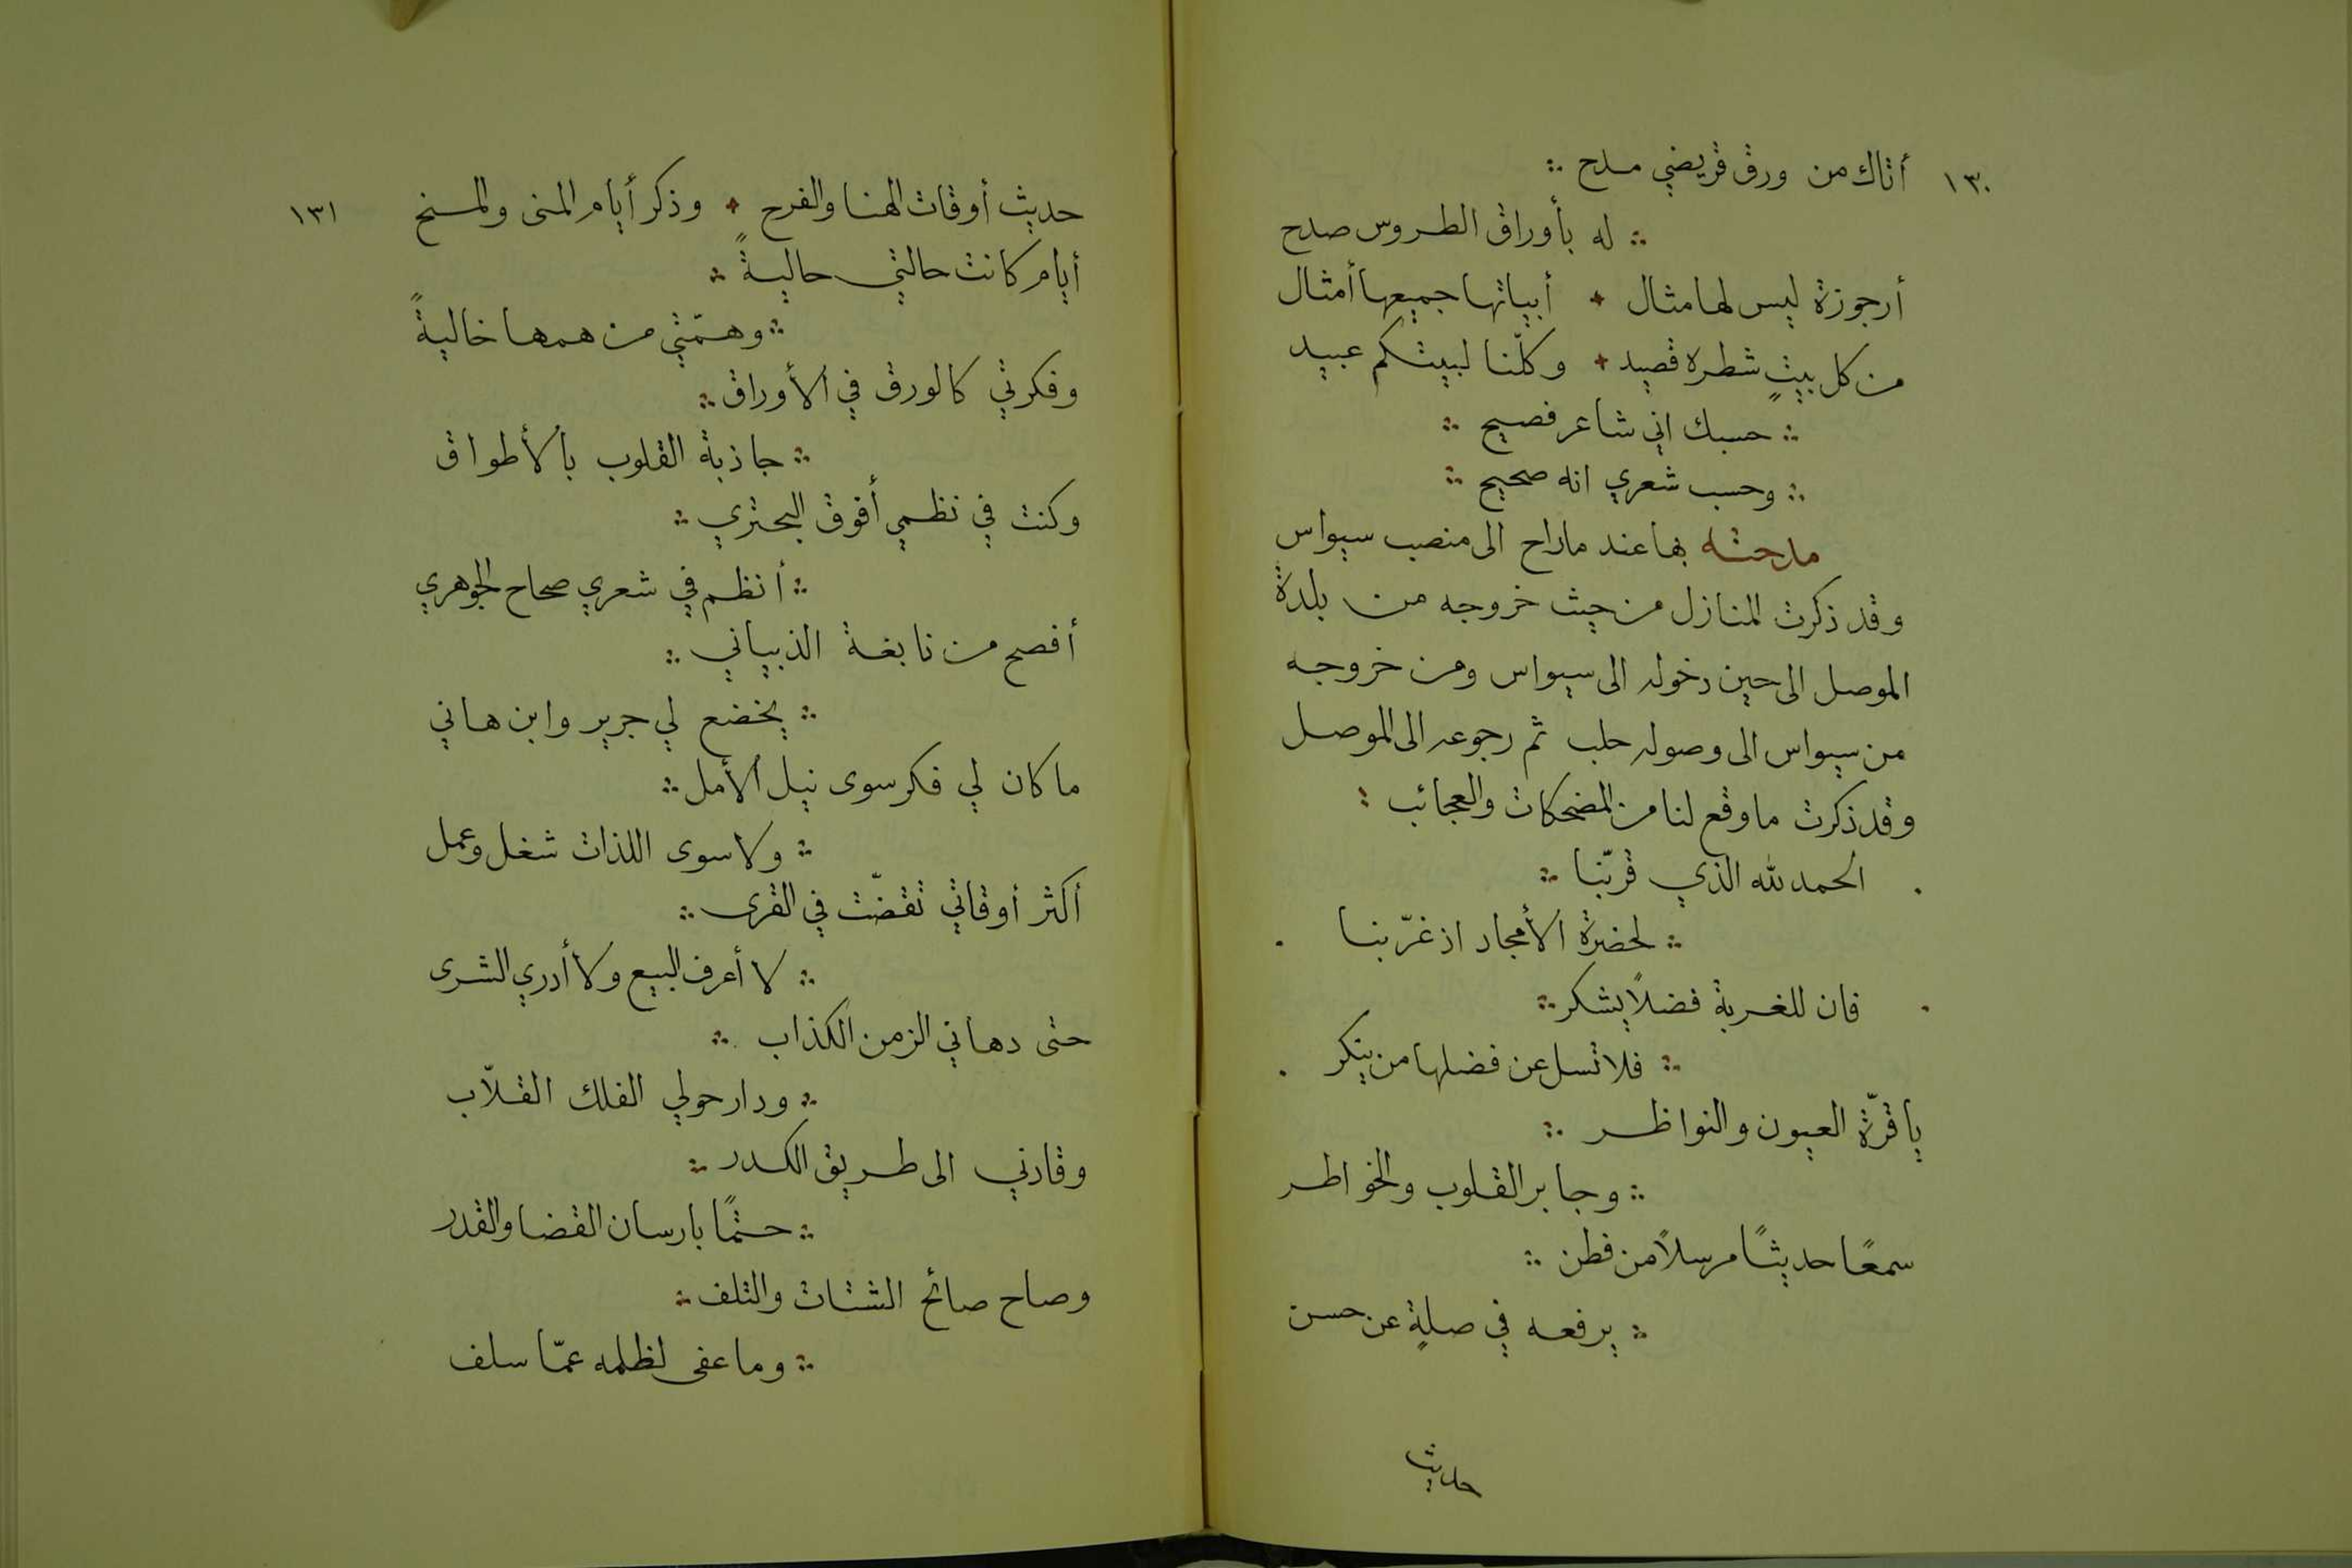 ١٣٠
أتاك من ورق قريضي مدح ∴
∴ له بأوراق الطروس صدح
أرجوزة ليس لها مثال + أبياتها جميعها أمثال
من كل بيتٍ شطره قصيد + وكلّنا لبيتكم عبيد
∴ حسبك اني شاعر فصيح ∴
∴ وحسب شعري انه صحيح ∴
مدحته بها عند ماراح الى منصب سيواس
وقد ذكرت المنازل من حيث خروجه من بلدة
الموصل الى حين دخوله الى سيواس ومن خروجه
من سيواس الى وصوله حلب ثم رجوعه الى الموصل
وقد ذكرت ما وقع لنا من المضحكات والعجائب :
الحمد لله الذي قرّبنا ∴
∴ لحضرة الأمجاد اذ غرّبنا
فان للغربة فضلاً يشكر ∴
∴ فلا تسل عن فضلها من ينكر
يا قرّة العيون والنواظر ∴
∴ وجابر القلوب والخواطر
سمعًا حديثًا مرسلاً من فطن ∴
∴ يرفعه في صلةٍ عن حسن
حديث
١٣١
حديث أوقات الهنا والفرح + وذكر أيام المنى والمنح
أيام كانت حالتي حاليةً ∴
∴ وهمّتي من همها خاليةً
وفكرتي كالورق في الأوراق ∴
∴ جاذبة القلوب بالأطواق
وكنت في نظمي أفوق البحتري ∴
∴ أنظم في شعري صحاح الجوهري
أفصح من نابغة الذبياني ∴
∴ يخضع لي جرير وابن هاني
ما كان لي فكر سوى نيل الأمل ∴
∴ ولا سوى اللذات شغل وعمل
أكثر أوقاتي تقضّت في القرى ∴
∴ لا أعرف البيع ولا أدري الشرى
حتى دهاني الزمن الكذاب ∴
∴ ودار حولي الفلك القلاّب
وقادني الى طريق الكدر ∴
∴ حتمًا بارسان القضا والقدر
وصاح صائح الشتات والتلف ∴
∴ وما عفى لظلمه عمّا سلف